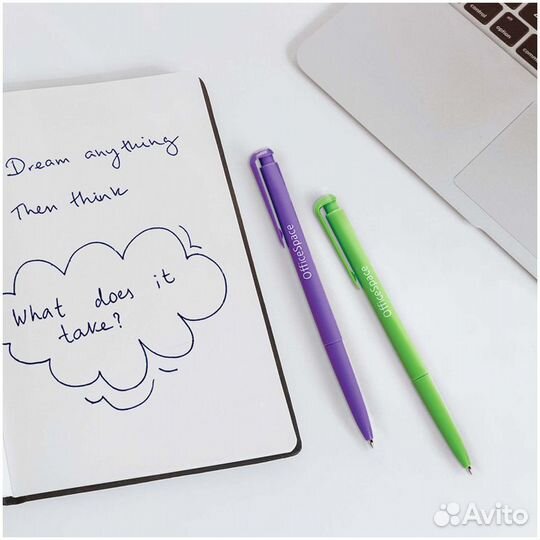 Dream anything
Then think
What does it
take?
OfficeSpace
OfficeSpace
control
option
command
Avito